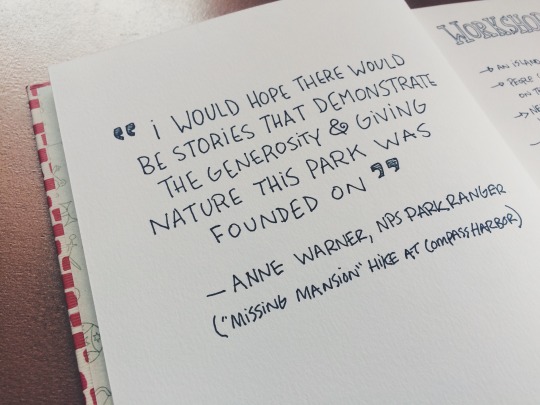 “ i WOULD HOPE THERE WOULD
BE STORIES THAT DEMONSTRATE
THE GENEROSITY & GIVING
NATURE THiS PARK WAS
FOUNDED ON ”
— ANNE WARNER, NPS PARK RANGER
("MiSSiNG MANSiON" HiKE AT COMPASS HARBOR)
WORKSHOP
→ AN ISLAND
ON